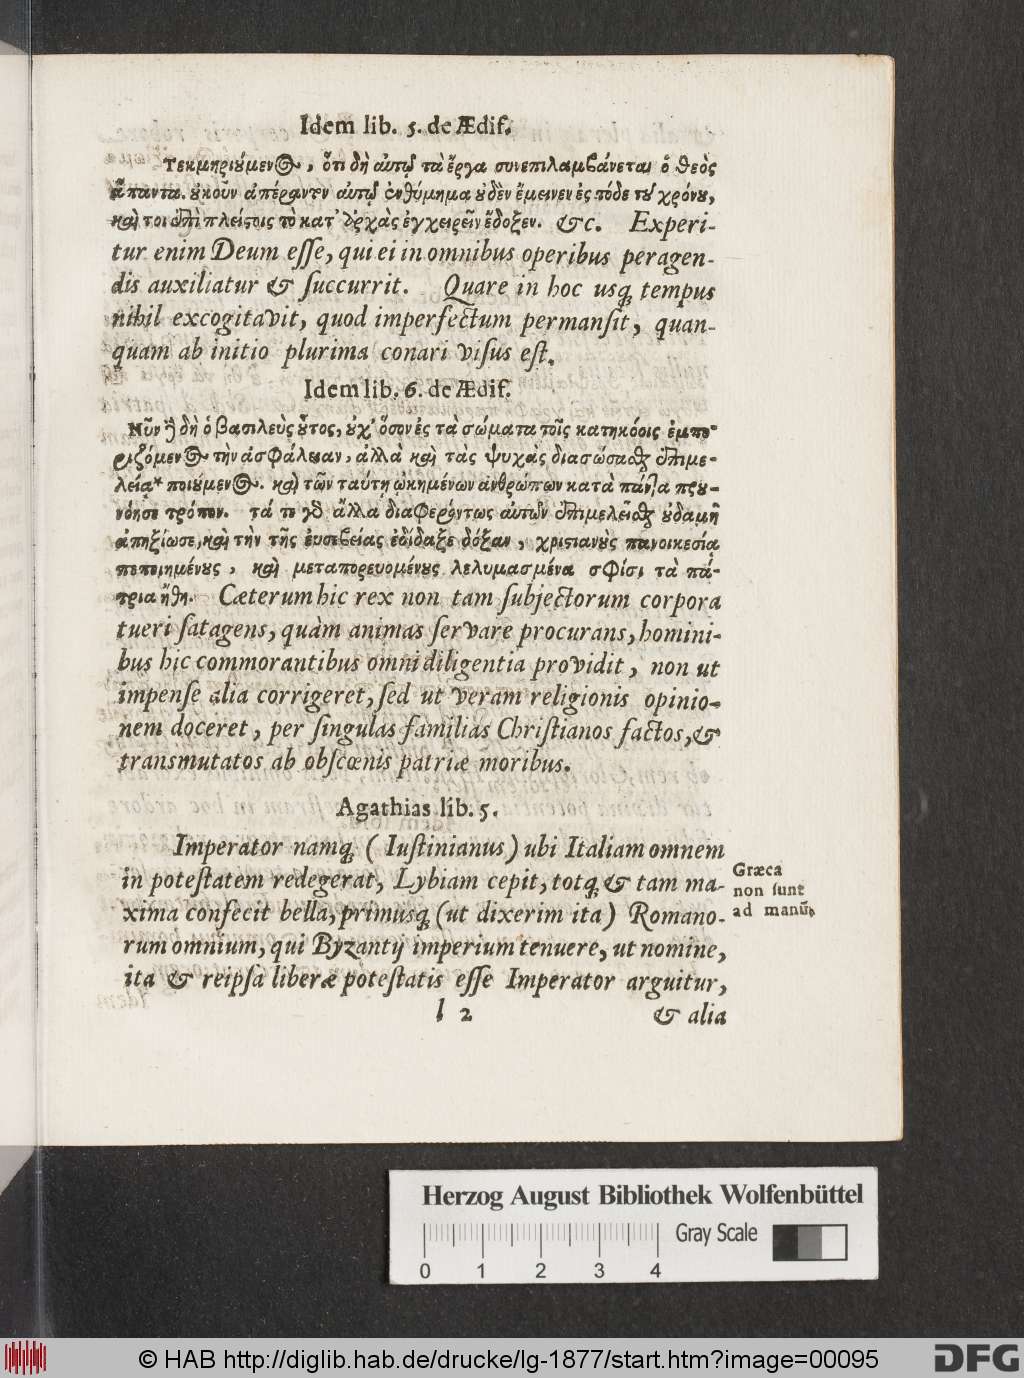 Idem lib. 5. de Ædif.
Τεκμηριούμενος, ὅτι δὴ αὐτῷ τὰ ἔργα συνεπιλαμβάνεται ὁ θεὸς
ἅπαντα. οὐκοῦν ἀπέραντον αὐτῷ ἐνθύμημα οὐδὲν ἔμεινεν ἐς τόδε τοῦ χρόνου,
καὶ τοι ἐπὶ πλείστοις τὸ κατ' ἀρχὰς ἐγχειρεῖν ἔδοξεν. &c. Experi-
tur enim Deum eſſe, qui ei in omnibus operibus peragen-
dis auxiliatur & ſuccurrit. Quare in hoc usq; tempus
nihil excogitavit, quod imperfectum permanſit, quan-
quam ab initio plurima conari viſus eſt.
Idem lib. 6. de Ædif.
Νῦν δὲ δὴ ὁ βασιλεὺς οὗτος, οὐχ' ὅσον ἐς τὰ σώματα τοῖς κατηκόοις ἐμπο-
ριζόμενος τὴν ἀσφάλειαν, ἀλλὰ καὶ τὰς ψυχὰς διασώσασθαι ἐπιμε-
λείας ποιούμενος. καὶ τῶν ταύτῃ ᾠκημένων ἀνθρώπων κατὰ πάντα πρου-
νόησε τρόπον. τά τε γὰρ ἄλλα διαφερόντως αὐτῶν ἐπιμελεῖσθαι οὐδαμῆ
ἀπηξίωσε, καὶ τὴν τῆς εὐσεβείας ἐδίδαξε δόξαν, χριστιανοὺς πανοικεσίᾳ
πεποιημένους, καὶ μεταπορευομένους λελυμασμένα σφίσι τὰ πά-
τρια ἤθη. Cæterum hic rex non tam ſubjectorum corpora
tueri ſatagens, quàm animas ſervare procurans, homini-
bus hic commorantibus omni diligentia providit, non ut
impenſe alia corrigeret, ſed ut veram religionis opinio-
nem doceret, per ſingulas familias Chriſtianos factos, &
transmutatos ab obſcœnis patriæ moribus.
Agathias lib. 5.
Imperator namq; (Iuſtinianus) ubi Italiam omnem
in poteſtatem redegerat, Lybiam cepit, totq; & tam ma-
xima confecit bella, primusq; (ut dixerim ita) Romano-
rum omnium, qui Byzantij imperium tenuere, ut nomine,
ita & reipſa liberæ poteſtatis eſſe Imperator arguitur,
Græca
non ſunt
ad manū.
l 2
& alia
Herzog August Bibliothek Wolfenbüttel
Gray Scale
0 1 2 3 4
© HAB http://diglib.hab.de/drucke/lg-1877/start.htm?image=00095
DFG